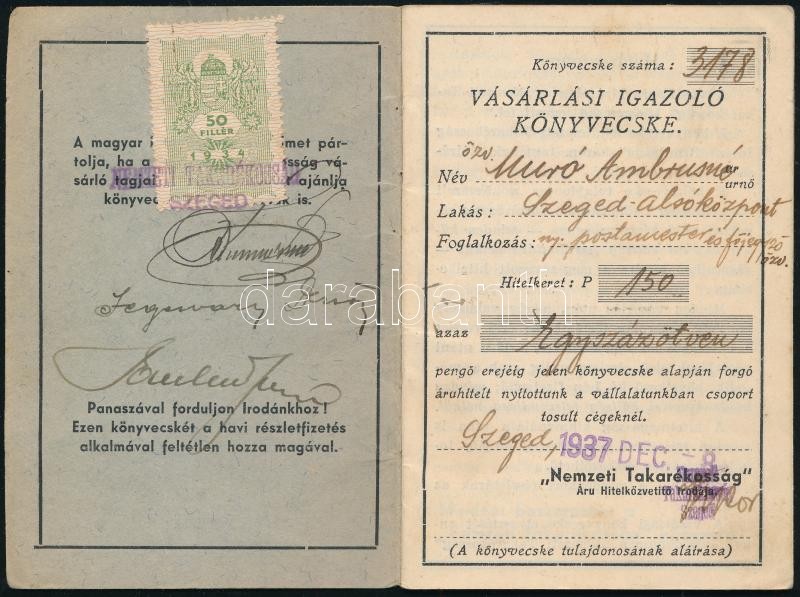 50
FILLÉR
19
A magyar
pártolja, ha a
vásárló tagjai
ajánlja
könyve
is.
NEMZETI TAKARÉKOSSÁG
SZEGED
Panaszával forduljon Irodánkhoz!
Ezen könyvecskét a havi részletfizetés
alkalmával feltétlen hozza magával.
Könyvecske száma: 3178
VÁSÁRLÁSI IGAZOLÓ
KÖNYVECSKE.
Név özv. Muró Ambrusné úr
úrnő
Lakás: Szeged-alsóközpont
Foglalkozás: ny. postamester és főjegyző
özv.
Hitelkeret: P 150
azaz Egyszázötven
pengő erejéig jelen könyvecske alapján forgó
áruhitelt nyitottunk a vállalatunkban csoport
tosult cégeknél.
Szeged, 1937 DEC. - 8.
„Nemzeti Takarékosság"
Áru Hitelközvetítő Irodája.
Szeged
(A könyvecske tulajdonosának aláírása)
darabanth